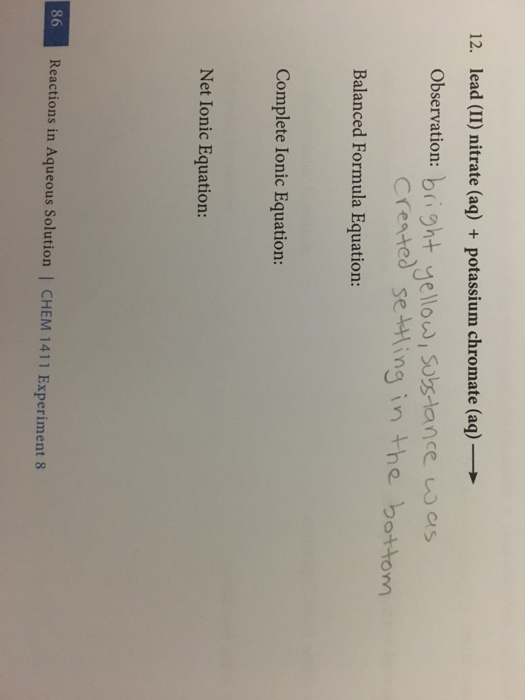 12. lead (II) nitrate (aq) + potassium chromate (aq) ⟶
Observation: bright yellow, substance was
created settling in the bottom
Balanced Formula Equation:
Complete Ionic Equation:
Net Ionic Equation:
86 Reactions in Aqueous Solution | CHEM 1411 Experiment 8